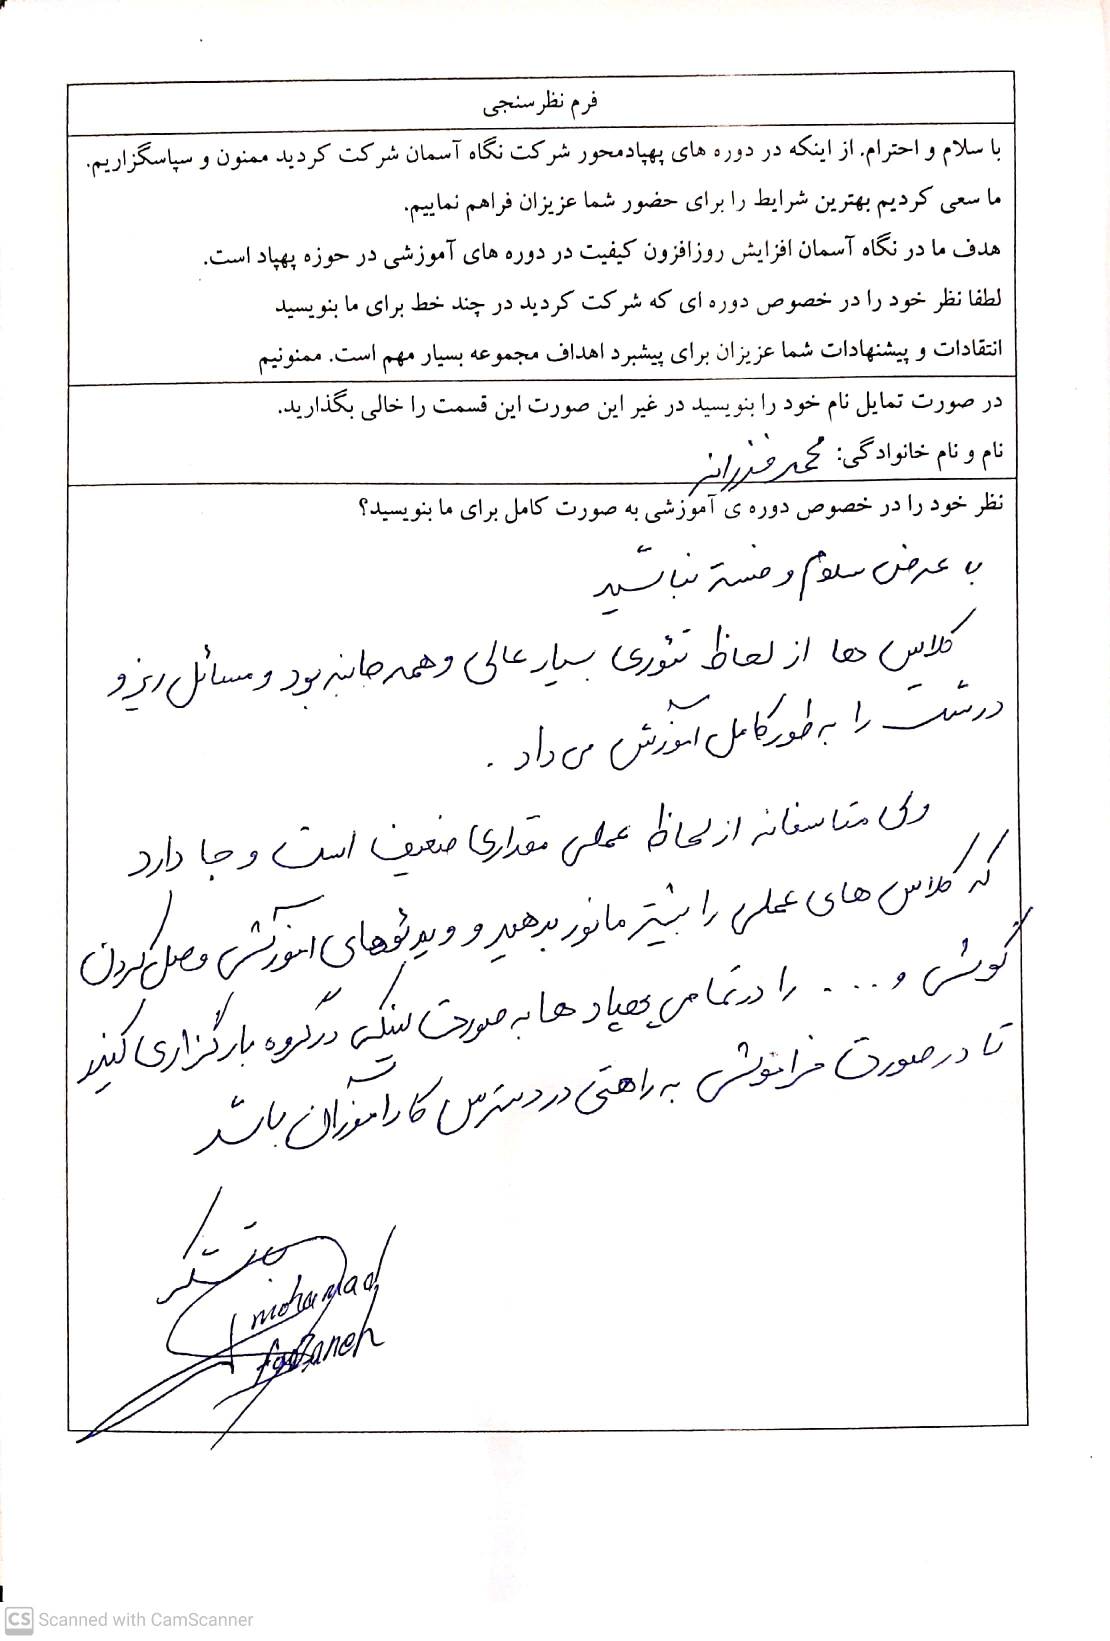 فرم نظرسنجی
با سلام و احترام. از اینکه در دوره های پهپادمحور شرکت نگاه آسمان شرکت کردید ممنون و سپاسگزاریم.
ما سعی کردیم بهترین شرایط را برای حضور شما عزیزان فراهم نماییم.
هدف ما در نگاه آسمان افزایش روزافزون کیفیت در دوره های آموزشی در حوزه پهپاد است.
لطفا نظر خود را در خصوص دوره ای که شرکت کردید در چند خط برای ما بنویسید
انتقادات و پیشنهادات شما عزیزان برای پیشبرد اهداف مجموعه بسیار مهم است. ممنونیم
در صورت تمایل نام خود را بنویسید در غیر این صورت این قسمت را خالی بگذارید.
نام و نام خانوادگی: محمد فرزانه
نظر خود را در خصوص دوره ی آموزشی به صورت کامل برای ما بنویسید؟
با عرض سلام و خسته نباشید
کلاس ها از لحاظ تئوری بسیار عالی و همه جانبه بود و مسائل ریز و
درشت را به طور کامل آموزش می داد.
ولی متاسفانه از لحاظ عملی مقداری ضعیف است و جا دارد
که کلاس های عملی را بیشتر مانور بدهید و ویدئوهای آموزشی وصل کردن
گوشی و .... را در تمامی پهپاد ها به صورت لینکی در گروه بارگزاری کنید
تا در صورت فراموشی به راحتی در دسترس کارآموزان باشد
با تشکر
mohamad
farzaneh
CS Scanned with CamScanner